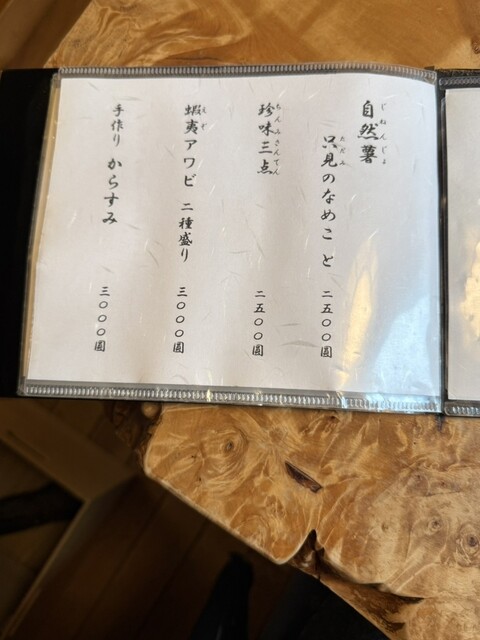 自然薯
じねんじょ
只見のなめこ と 二五〇〇圓
ただみ
珍味三点 二五〇〇圓
ちんみさんてん
蝦夷アワビ 二種盛り 三〇〇〇圓
えぞ
手作り からすみ 三〇〇〇圓